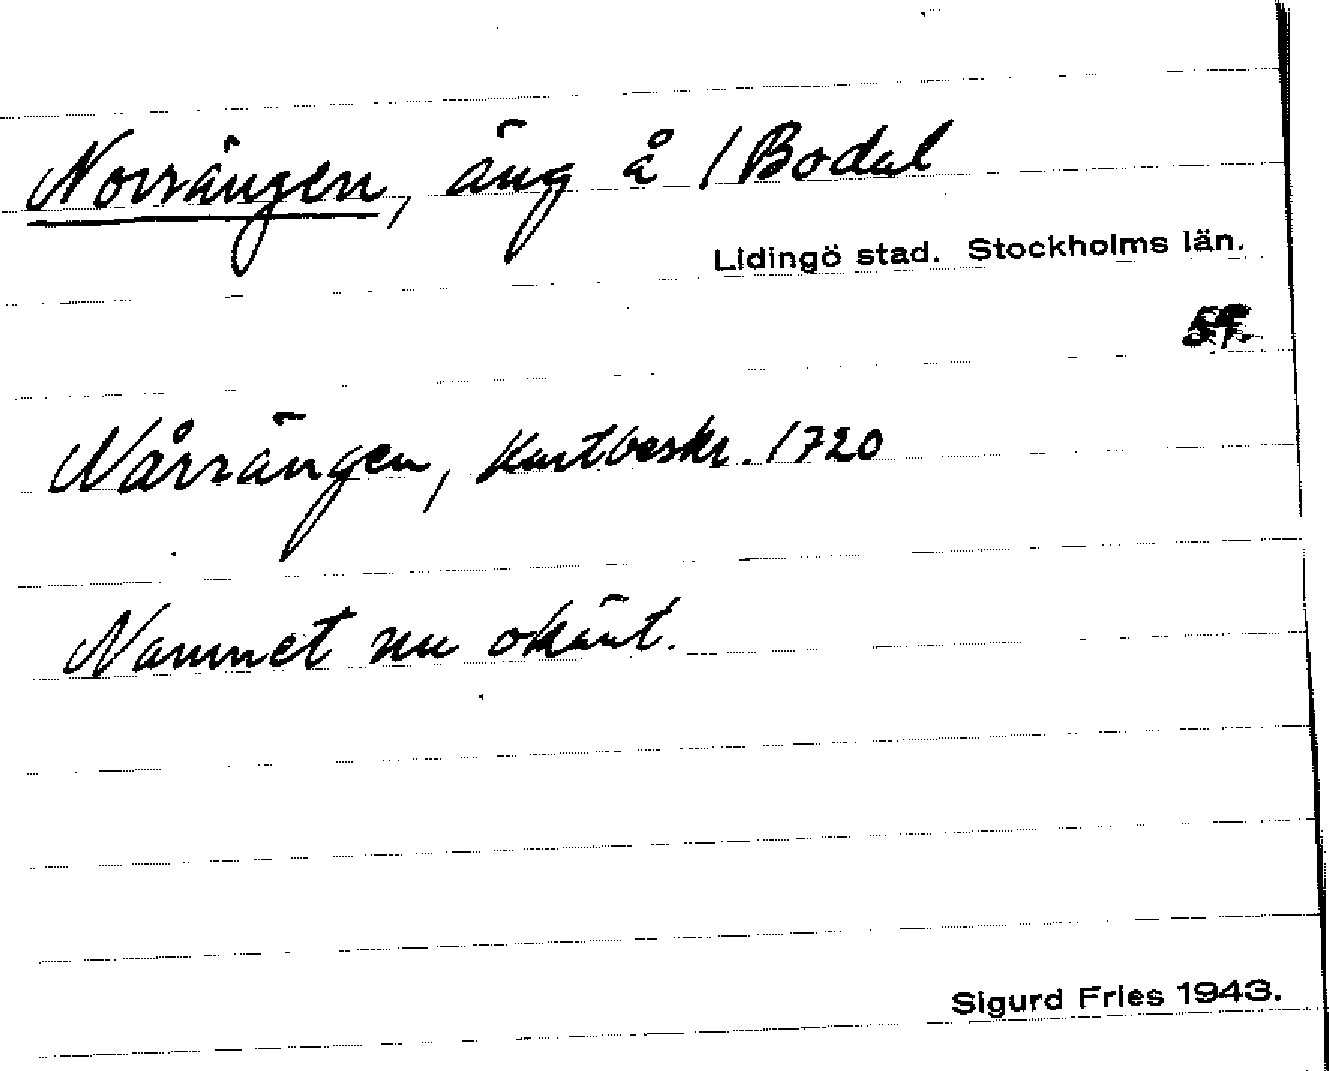 Norrängen, äng å 1 Bodal
Lidingö stad. Stockholms län.
Nårrängen, Kartbeskr. 1720
Namnet nu okänt.
Sigurd Fries 1943.